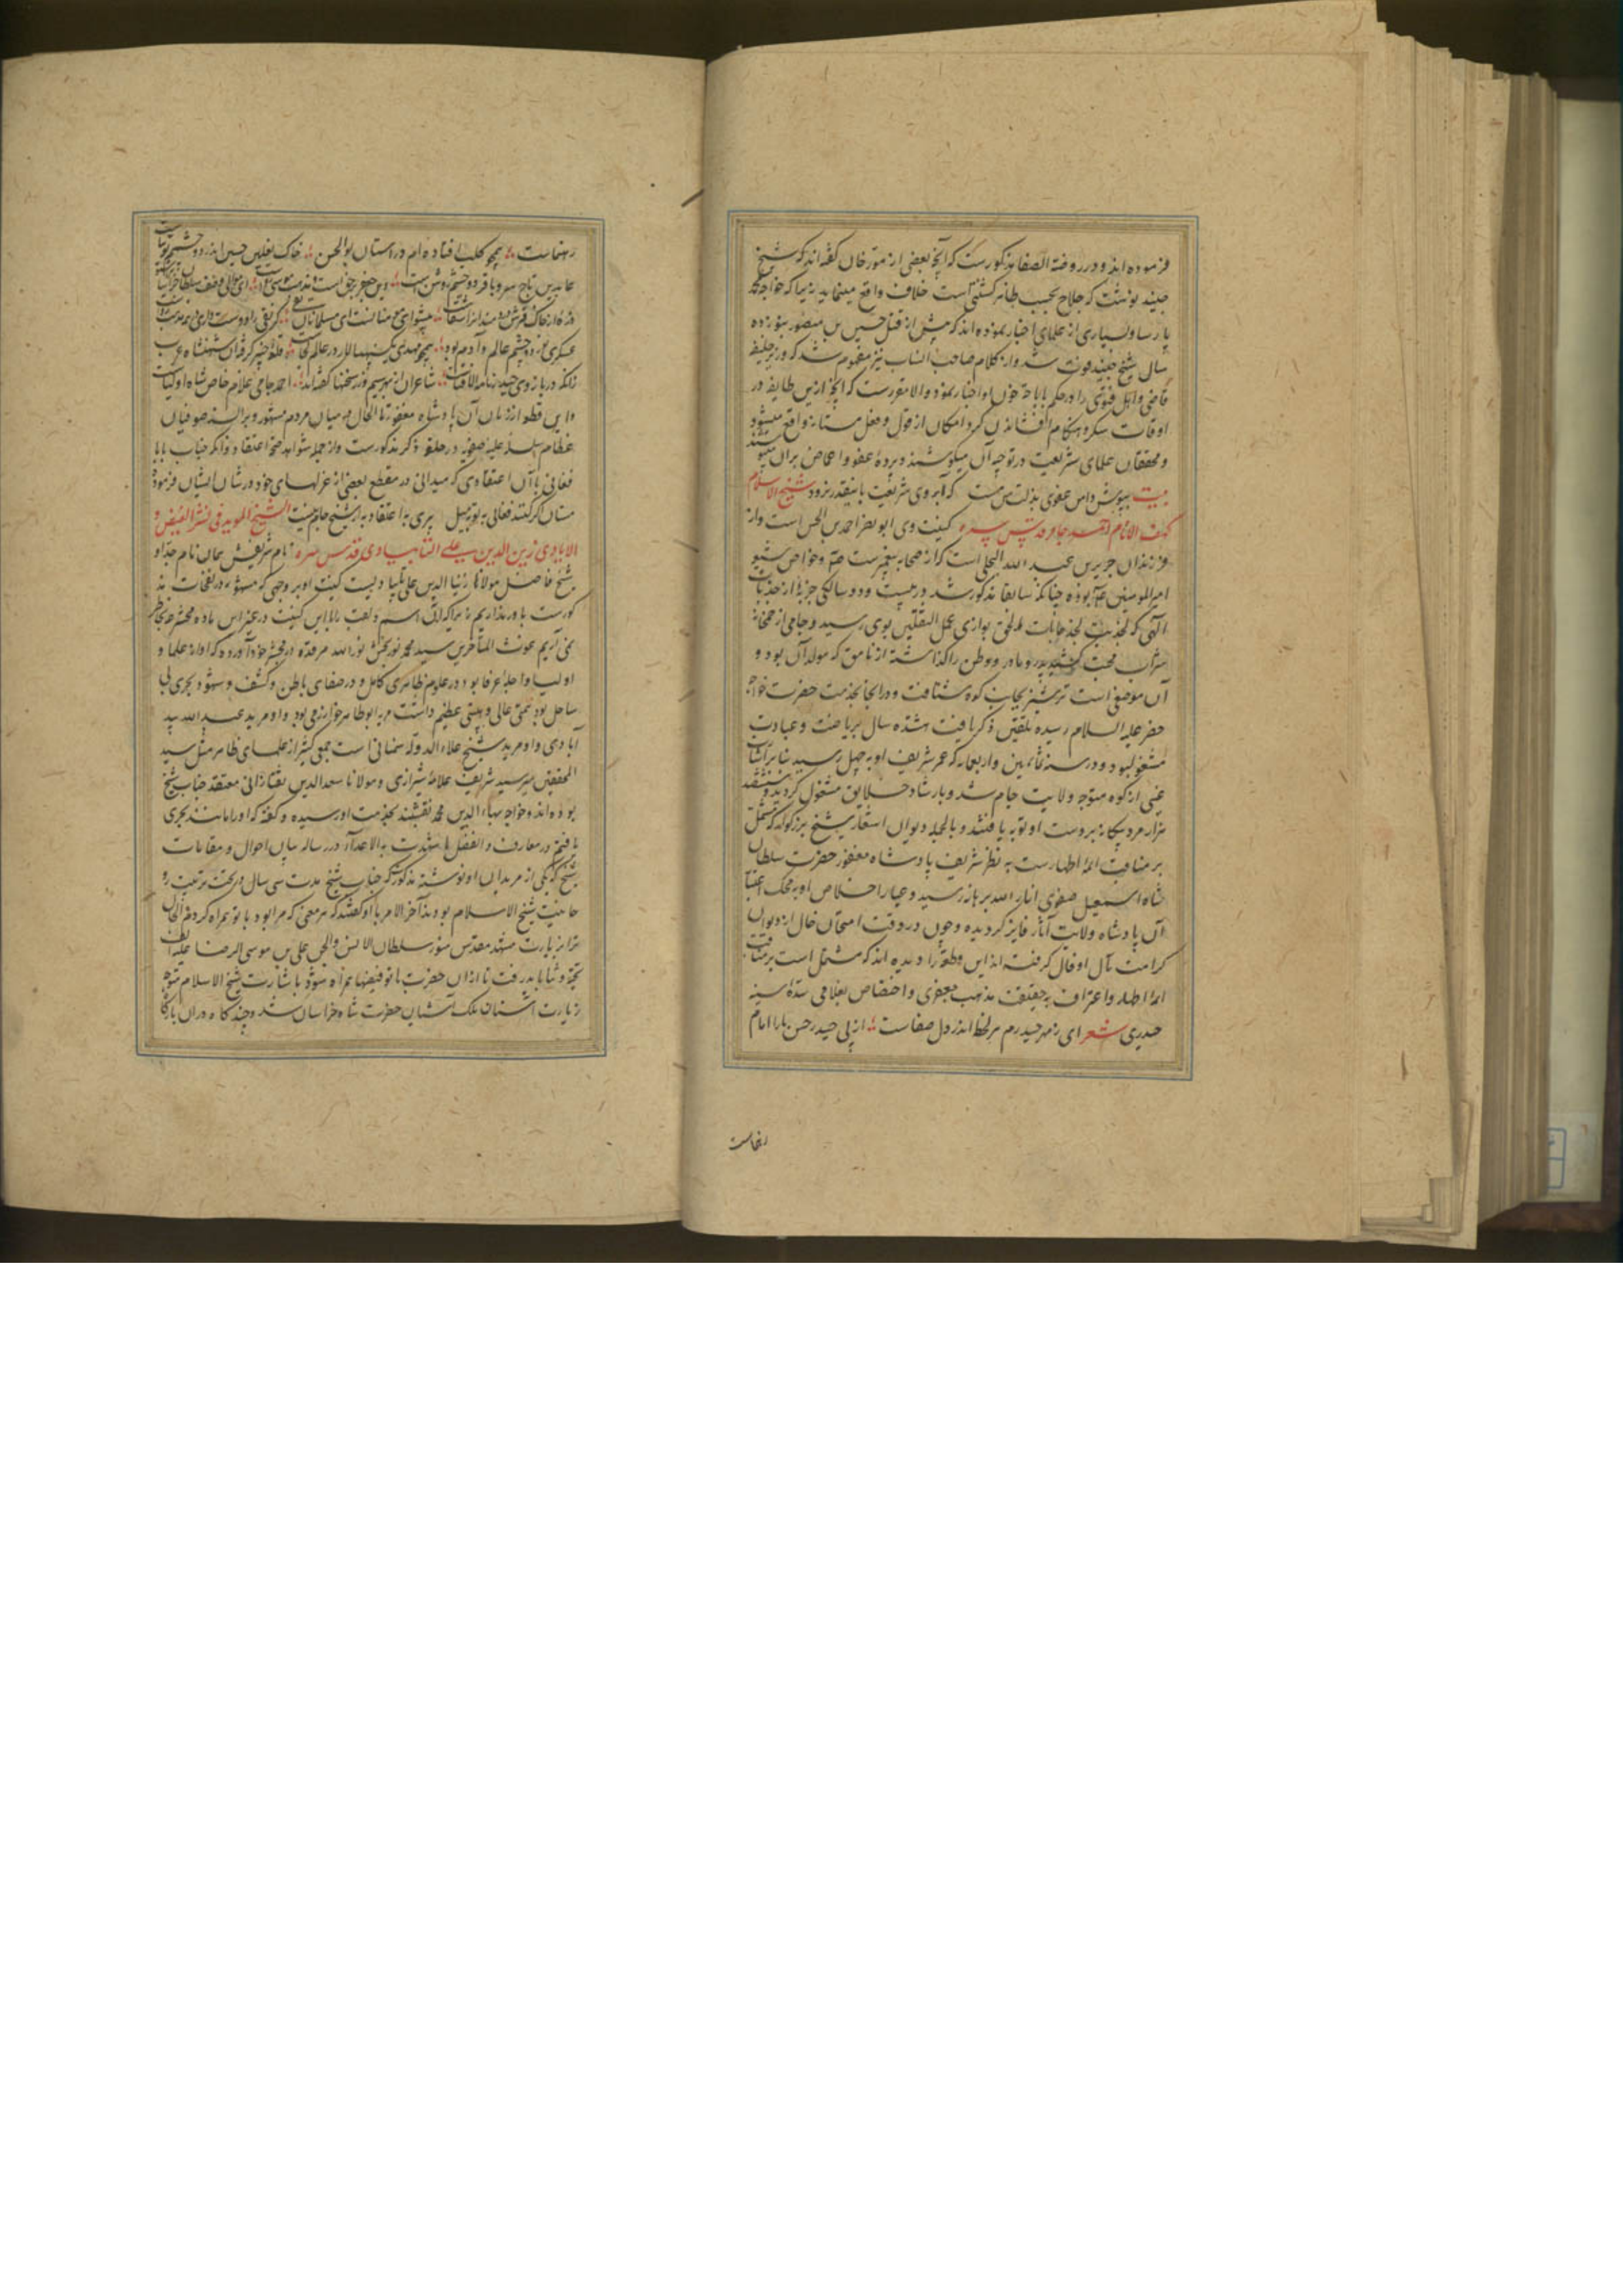 فرموده اند و در روضة الصفا مذکورست که آنچه بعضی از مورخان گفته اند که شیخ
جنید نوشت که حلاج بحسب ظاهر کشتنی است خلاف واقع مینماید زیرا که خواجه محمد
پارسا و بسیاری از علمای اخبار نموده اند که پیش از قتل حسین بن منصور بنوزده
سال شیخ جنید فوت شد و از کلام صاحب انساب نیز مفهوم شد که وزیر خلیفه
قاضی و اهل فتوی را در حکم باباحه خون او اخبار نمود و الا مقررست که آنچه ازین طایفه در
اوقات سکر و هنگام افشاندن گرد امکان از قول و فعل مستانه واقع میشود
و محققان علمای شریعت در توجیه آن میکوشند و پرده عفو و اغماض بران
بیت بپوش دامن عفوی بذلت من مست که آبروی شریعت باینقدر نرود شیخ الاسلام
کهف الانام احمد جام قدس سره کنیت وی ابو نصر احمد بن الحسن است و از
فرزندان جریر بن عبد الله البجلی است که از صحابه پیغمبرست صلعم و خواص شیعه
امیر المومنین بوده چنانکه سابقا مذکور شد در بیست و دو سالگی جذبه از جذبات
الهی که جذبة من جذبات الحق توازی عمل الثقلین بوی رسید و جامی از خمخانه
شراب محبت کشید پدر و مادر و وطن را گذاشته از نامق که مولد آن بود و
آن موضعی است ترشیز بجانب کوه شتافت و در انجا بخدمت حضرت خواجه
خضر علیه السلام رسیده تلقین ذکر یافت هشتده سال بریاضت و عبادت
مشغول بود و در سنه ثمانین و اربعمایه که عمر شریف او به چهل رسید بنابر اشارت
غیبی از کوه متوجه ولایت جام شد و بارشاد خلایق مشغول گردید و ششصد
هزار مرد بیگانه بر دست او توبه یافتند و بالجمله دیوان اشعار شیخ بزرگوار که مشتمل
بر مناقب ائمه اطهارست به نظر شریف پادشاه مغفور حضرت سلطان
شاه اسمعیل صفوی انار الله برهانه رسید و عیار اخلاص او به محک اعتبار
آن پادشاه ولایت آثار فایز گردیده و چون در وقت امتحان خال از دیوان
کرامت مآل او فال گرفته اند این قطعه را دیده اند که مشتمل است بر منقبت
ائمه اطهار و اعتراف به حقیقت مذهب جعفری و اختصاص بغلامی سده سینه
حیدری شعر ای ز مهر حیدرم هر لحظه اندر دل صفاست از پی حیدر حسن ما را امام
رهنماست
رهنماست همچو کلب افتاده ام در استان بو الحسن خاک نعلین حسین اندر دو چشمم توتیاست
عابدین تاج سر و باقر دو چشم روشن است دین جعفر بر حق است و مذهب موسی رواست ای موالی وصف سلطان خراسان
ذره از خاک قبرش دردمندانرا شفاست پیشوای مومنانست ای مسلمانان تقی گر نقی را دوست داری در همه مذهب رواست
عسکری نور دو چشم عالم و آدم بود همچو مهدی یک سپهسالار در عالم کجاست قلعه خیبر گرفت آن شهنشاه عرب
زانکه در بازوی حیدر نامه الا فتاست شاعران از بهر سیم و زر سخنها گفته اند احمد جامی غلام خاص شاه اولیاست
و این قطعه از زمان آن پادشاه مغفور تا الحال در میان مردم مشهور و بر السنه صوفیان
عظام سلسله علیه صفویه در حلقه ذکر مذکورست و از جمله شواهد صحه اعتقاد و آنکه جناب بابا
فغانی باآن اعتقادی که میدانی در مقطع بعضی از غزلهای خود در شان ایشان فرموده
مستان اگر کنند فغانی به توبه میل پیری به اعتقاد به از شیخ جام نیست الشیخ الموید فی نشر الفیض و
الایادی زین الدین علی التایبادی قدس سره نام شریفش بمان نام جد او
شیخ فاضل مولانا زین الدین علی تایبادیست کنیت او بر وجهی که مشهور در نفحات مذ
کورست باور نداریم زیرا که آن اسم و لقب را با این کنیت در عرف این ماده محشر بخاطر
نمی آریم غوث المتاخرین سید محمد نوربخش نور الله مرقده در مشجره خود آورده که او از علما و
اولیا و اجله عرفا بود در علوم ظاهری کامل و در صفای باطن و کشف و شهود بحری بی
ساحل بود همتی عالی و هیبتی عظیم داشت مرید ابو طاهر خوارزمی بود و او مرید عبد الله بید
آبادی و او مرید شیخ علاء الدوله سمنانی است جمعی کثیر از علمای ظاهر مثل سید
المحققین میر سید شریف علامه شیرازی و مولانا سعد الدین تفتازانی معتقد جناب شیخ
بوده اند و خواجه بهاء الدین محمد نقشبند بخدمت او رسیده و گفته که او را مانند بحری
یافتم در معارف و الفضل ما شهدت به الاعداء و در رساله بیان احوال و مقامات
شیخ که یکی از مریدان او نوشته مذکور که جناب شیخ مدت سی سال در تحت تربیت رو
حانیت شیخ الاسلام بودند آخر الامر باو گفتند که هر معنی که مرا بود با تو همراه کردم فالحال
ترا بزیارت مشهد مقدس منور سلطان الانس و الجن علی بن موسی الرضا علیه الف
تحیة و ثنا باید رفت تا از ان حضرت با تو فیضها همراه شود باشارت شیخ الاسلام متوجه
زیارت آستان ملک آشیان حضرت شاه خراسان شد و چند گاه در ان بارگاه